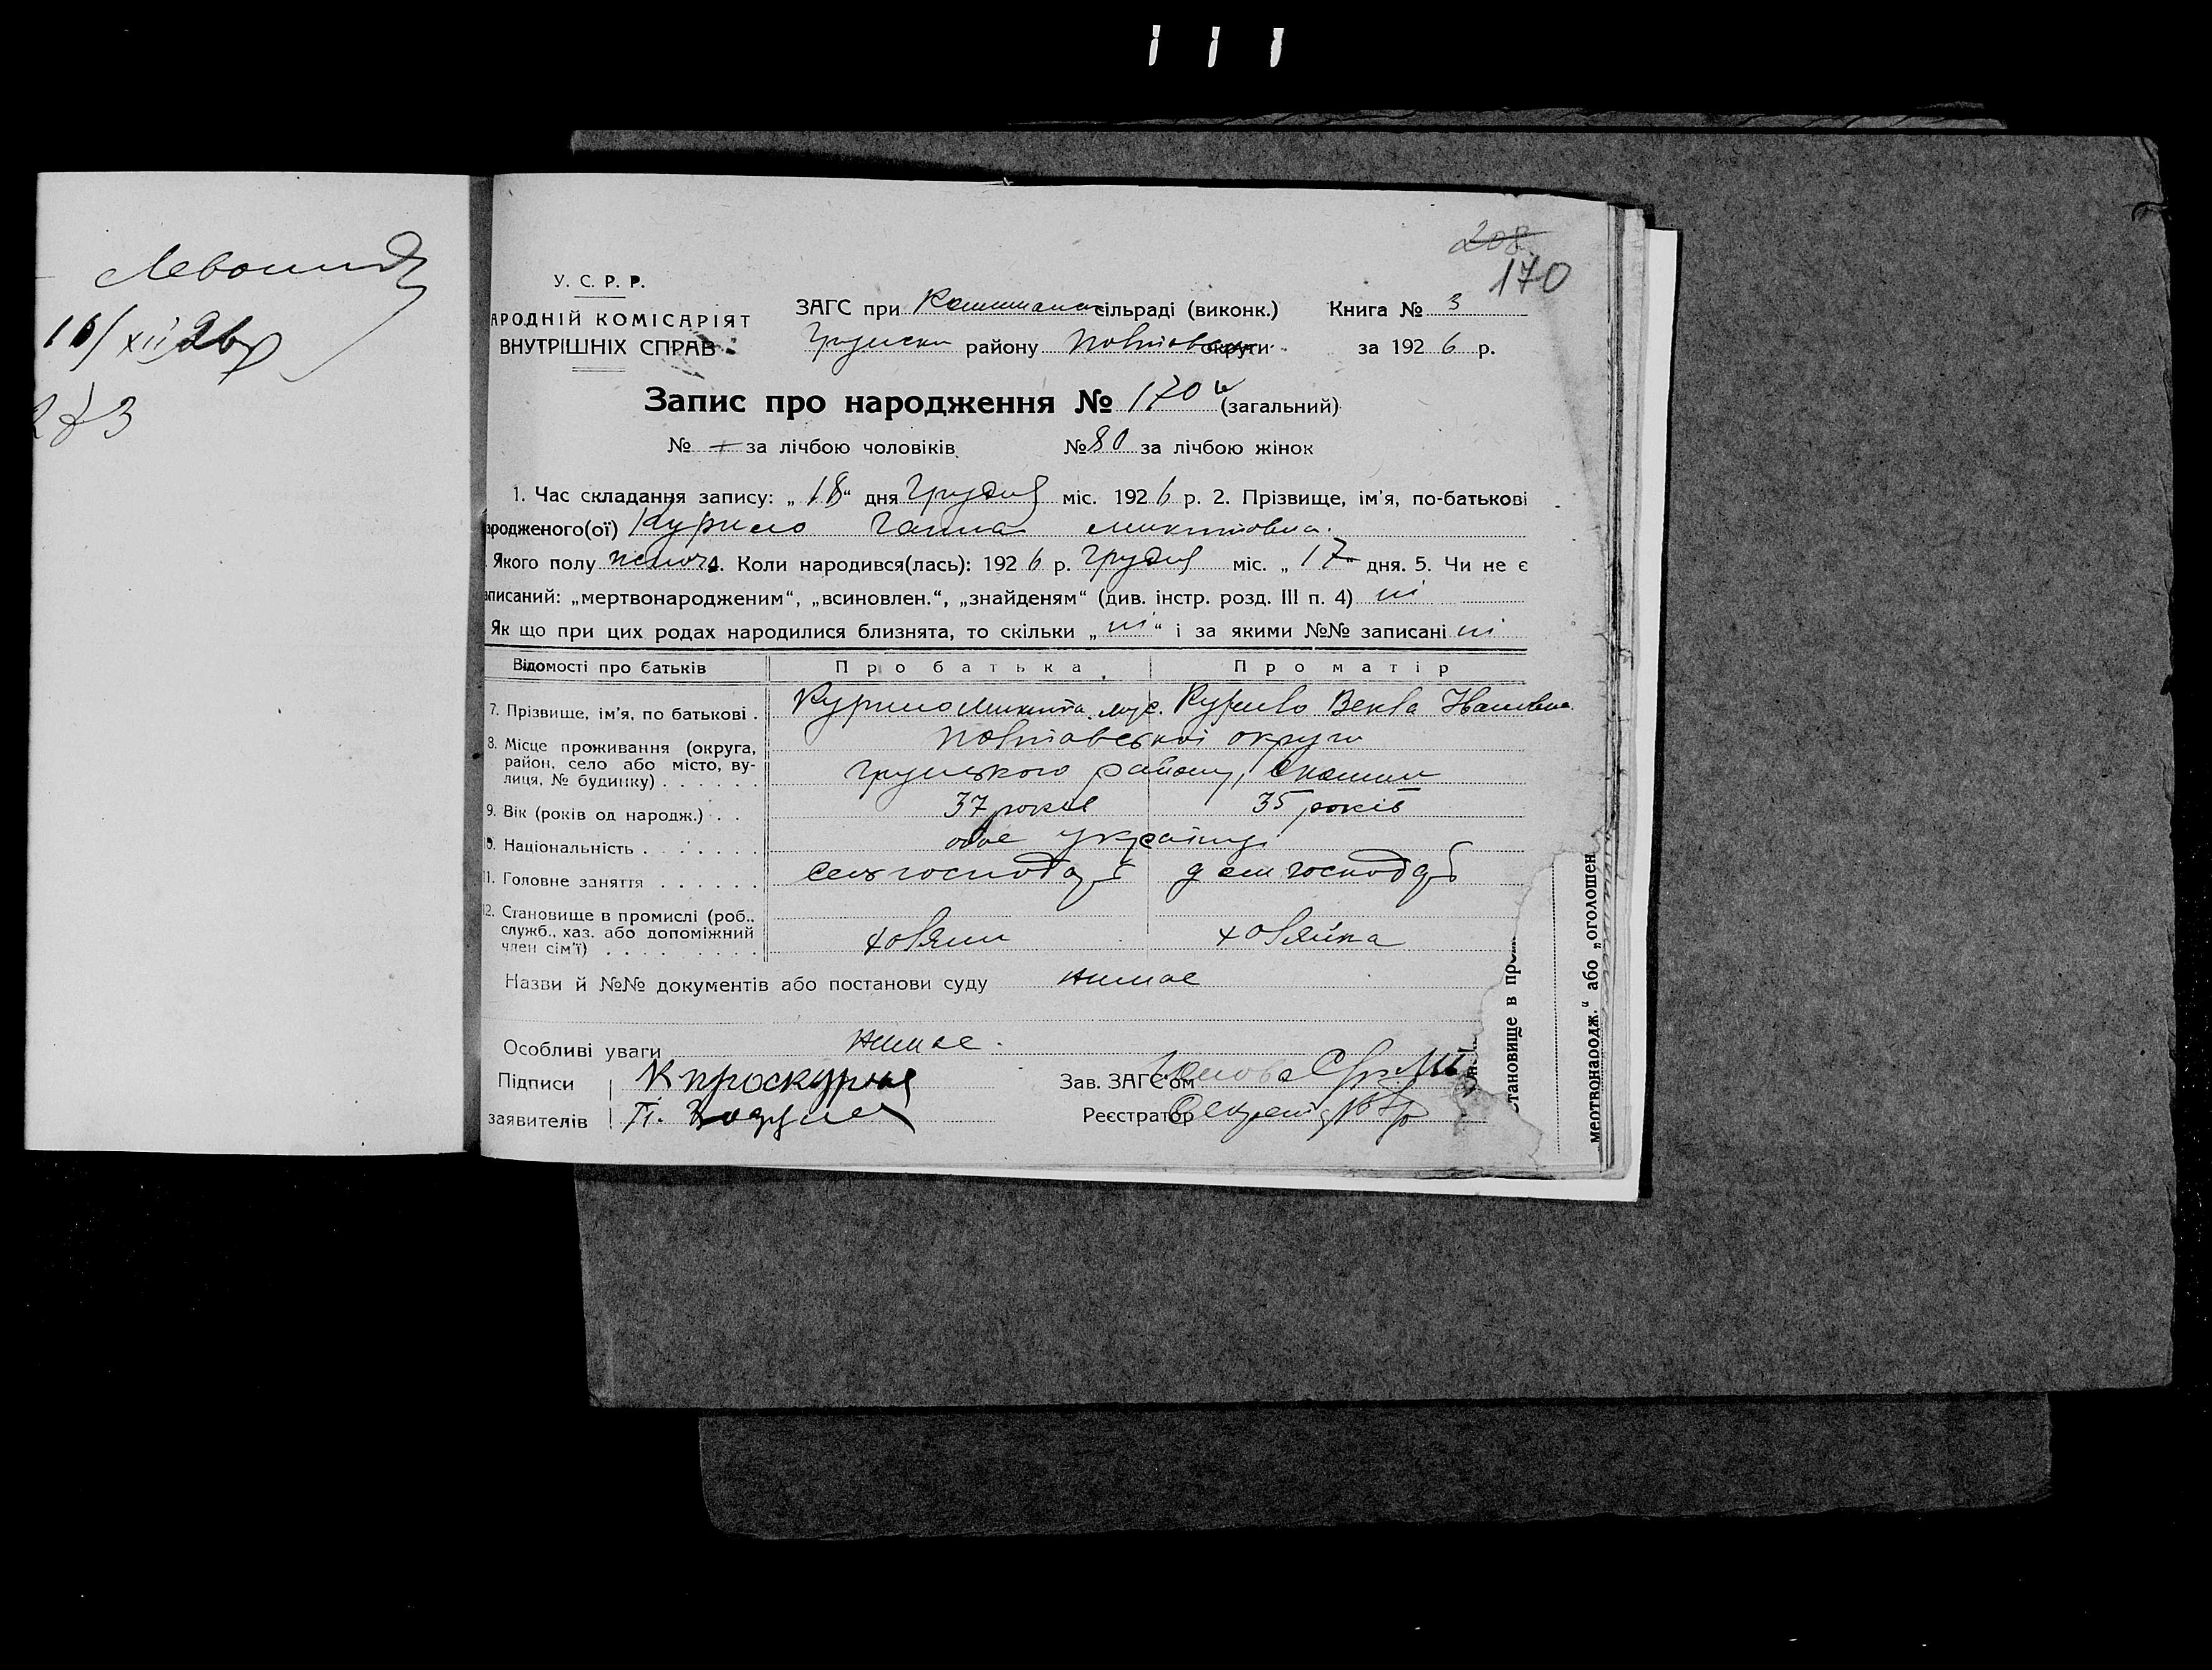 208
170
У. С. Р. Р.
АРОДНІЙ КОМІСАРІЯТ
ВНУТРІШНІХ СПРАВ
ЗАГС при сільраді (виконк.) Книга № 3
району Полтавськ округи за 1926 р.
Запис про народження № 170 (загальний)
№ за лічбою чоловіків № 80 за лічбою жінок
1. Час складання запису: „18“ дня Грудня міс. 1926 р. 2. Прізвище, ім'я, по-батькові
ародженого(ої) Курило Ганна Микитовна.
Якого полу жіноч. 4. Коли народився(лась): 1926 р. Грудня міс. „17“ дня. 5. Чи не є
аписаний: „мертвонародженим“, „всиновлен.“, „знайденям“ (див. інстр. розд. III п. 4) ні
Як що при цих родах народилися близнята, то скільки „ні“ і за якими №№ записані ні
Відомості про батьків Про батька Про матір
7. Прізвище, ім'я, по батькові . Курило Микита Курило Векла Ивановна.
8. Місце проживання (округа, район, село або місто, вулиця, № будинку) . . . . . . Полтавської округи
Грунського району,
9. Вік (років од народж.) . . 37 років 35 років
10. Національність . . . . . . . обоє українці
11. Головне заняття . . . . . . сельгосподар дом господар
12. Становище в промислі (роб., служб., хаз. або допоміжний член сім'ї) . . . . . . . . . хозяин хозяйка
Назви й №№ документів або постанови суду немає
Особливі уваги немає.
Підписи К Проскурня Зав. ЗАГС'ом
заявителів П. Реєстратор
становище в пр
мертвонародж.“ або „оголошен
16/XII 26 р
273